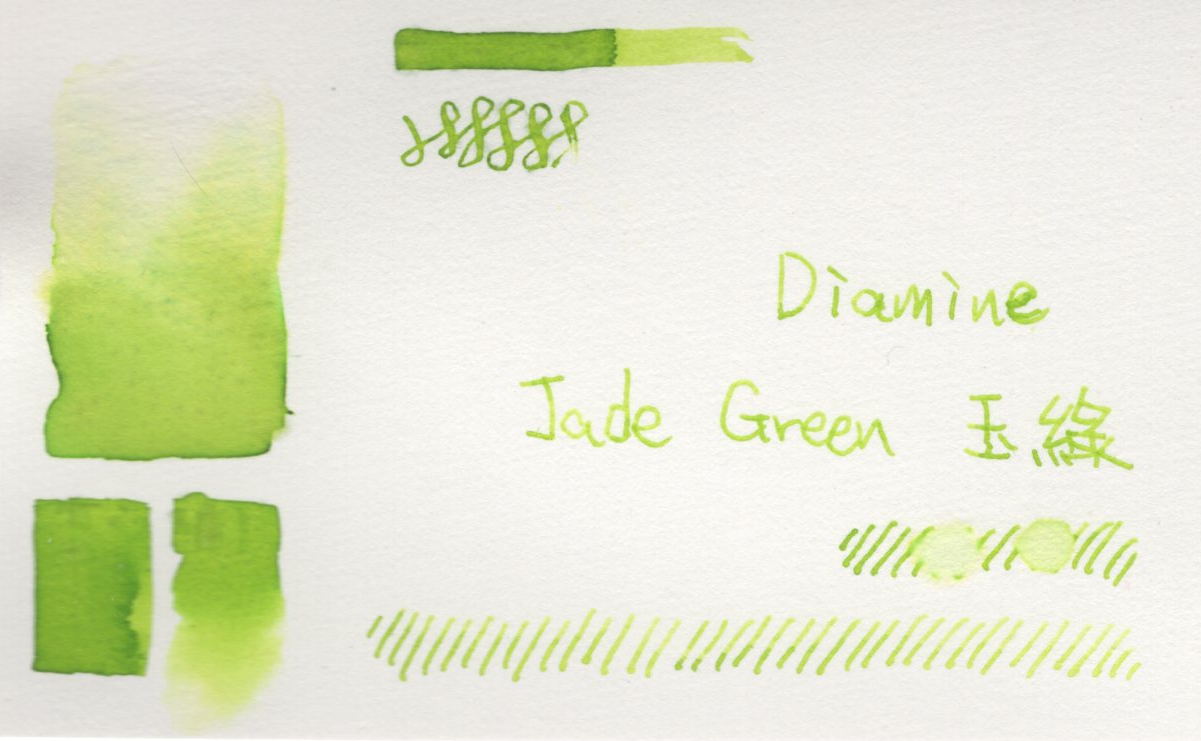 Diamine
Jade Green 玉綠